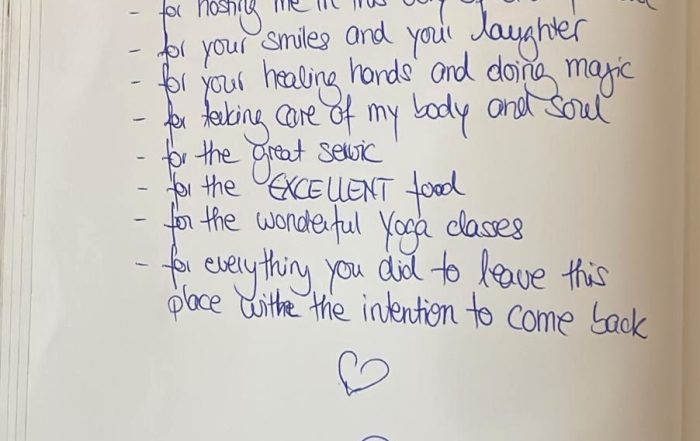 - for hosting me in this
- for your smiles and your laughter
- for your healing hands and doing magic
- for taking care of my body and soul
- for the great servic
- for the EXCELLENT food
- for the wonderful Yoga classes
- for everything you did to leave this
place withe the intention to come back